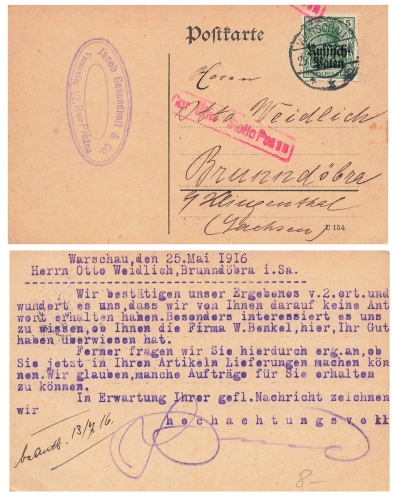 Postkarte
5
WARSCHAU
Russisch-
Polen
Jacob Gesundheit & Co.
Herrn
Otto Weidlich
Brunndöbra
b/ Klingenthal
(Sachsen)
C 154
Warschau, den 25.Mai 1916
Herrn Otto Weidlich,Brunndöbra i.Sa.
Wir bestätigen unser Ergebenes v.2.crt.und
wundert es uns,dass wir von Ihnen darauf keine Ant
wort erhalten haben.Besonders interessiert es uns
zu wissen,ob Ihnen die Firma W.Benkel,hier,Ihr Gut
haben überwiesen hat.
Ferner fragen wir Sie hierdurch erg.an,ob
Sie jetzt in Ihren Artikeln Lieferungen machen kön
nen.Wir glauben,manche Aufträge für Sie erhalten
zu können.
In Erwartung Ihrer gefl.Nachricht zeichnen
wir
hochachtungsvoll
beantw. 13/7 16.
8-